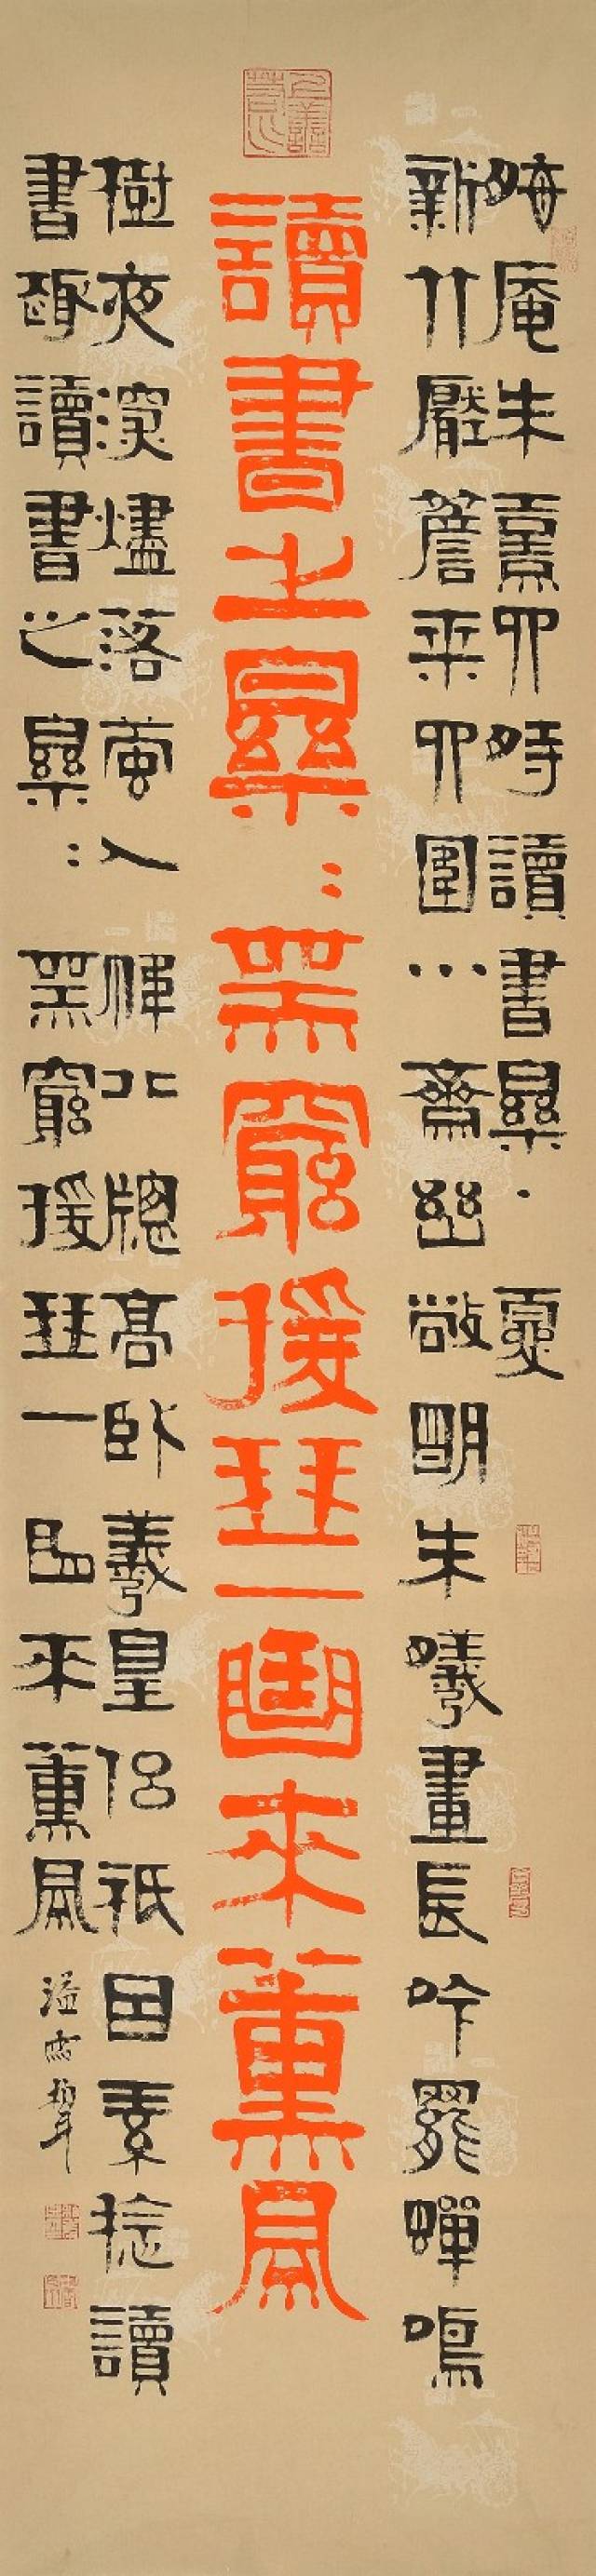 晦庵朱熹四時讀書樂·夏
新竹壓簷桑四圍小齋幽敞明朱曦晝長吟罷蟬鳴
讀書之樂〻無窮援琴一曲來薰風
樹夜深燼落螢入幃北牕高臥羲皇侶祇因素稔讀
書趣讀書之樂〻無窮援琴一曲來薰風